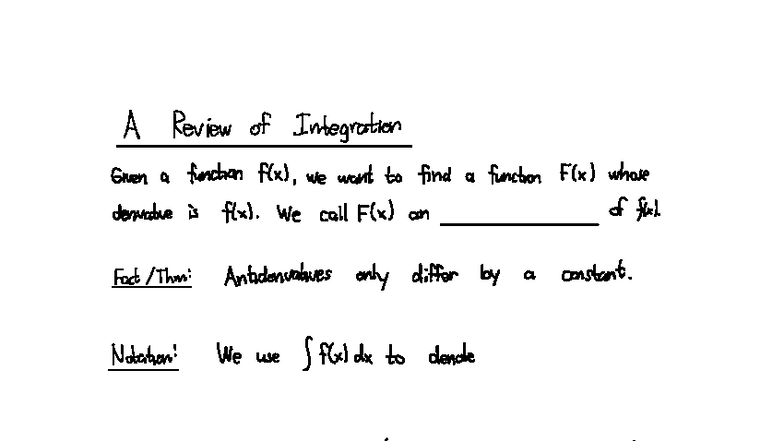 A Review of Integration
Given a function f(x), we want to find a function F(x) whose
derivative is f(x). We call F(x) an __________ of f(x).
Fact/Thm: Antiderivatives only differ by a constant.
Notation: We use ∫ f(x) dx to denote